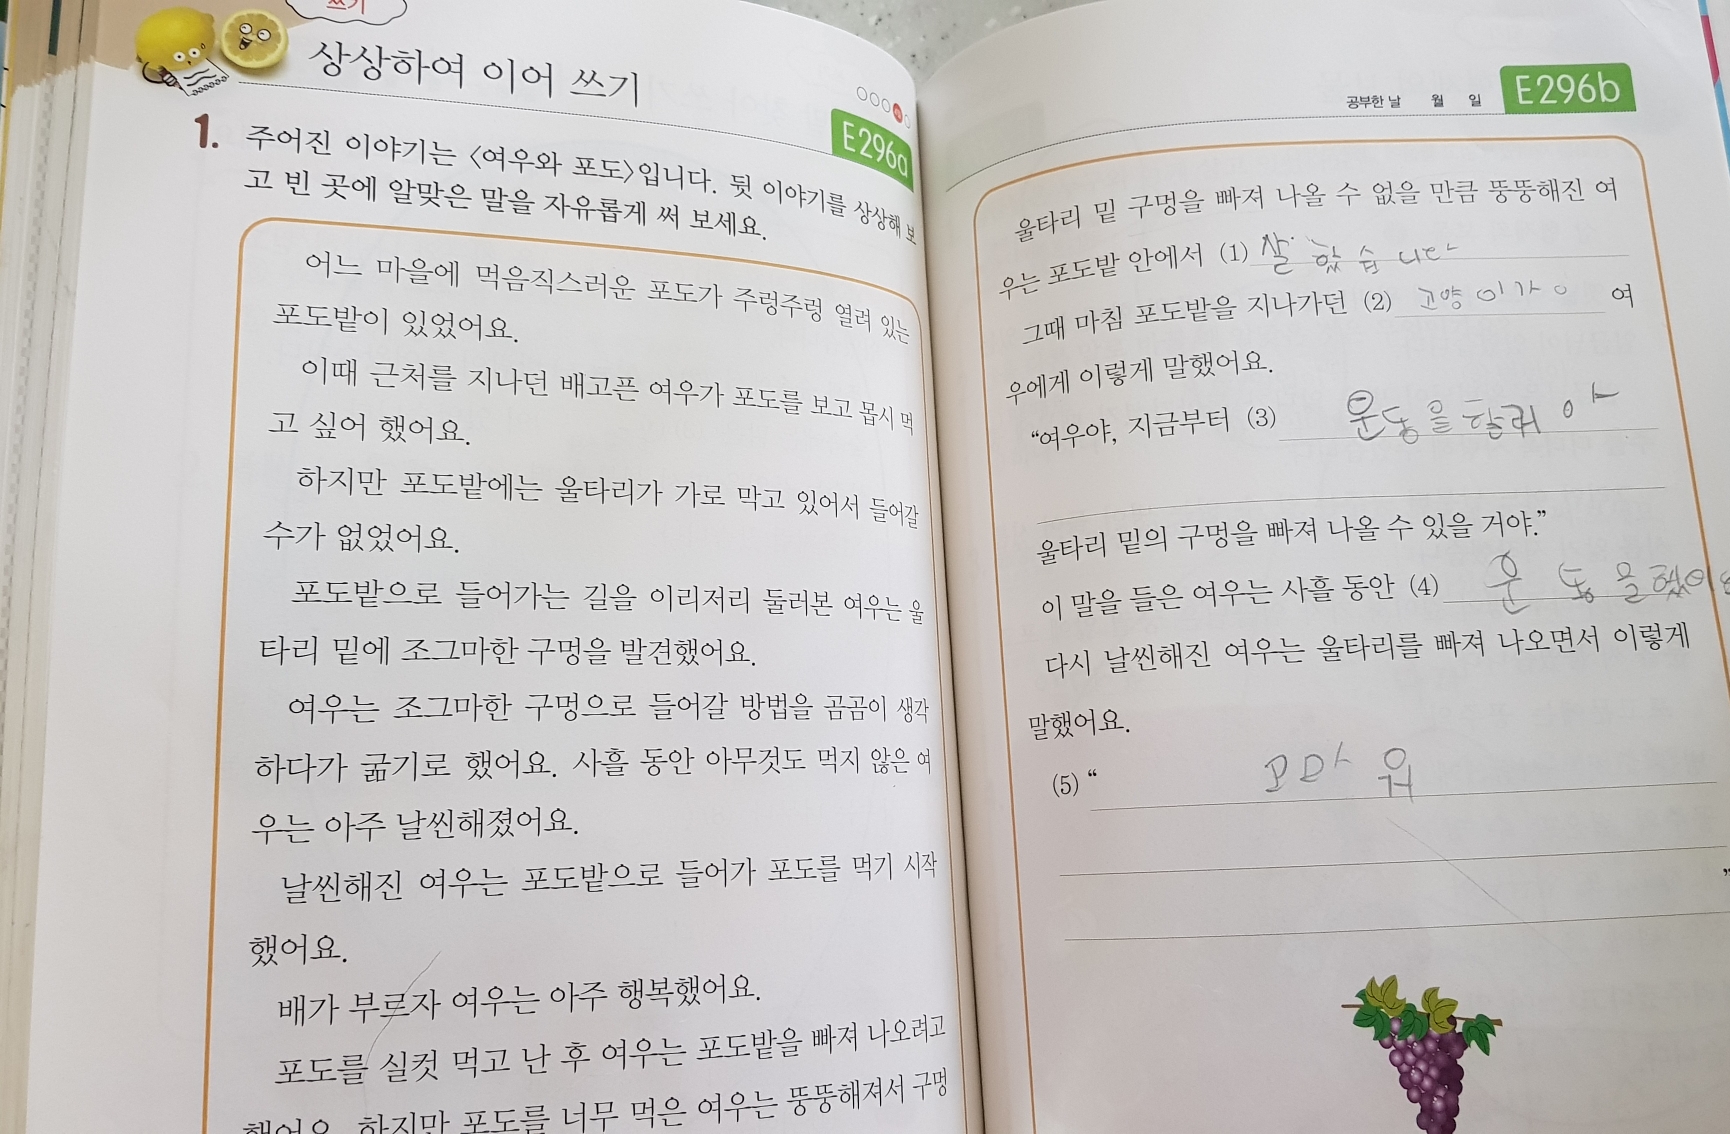 쓰기
상상하여 이어 쓰기
E296a
1. 주어진 이야기는 〈여우와 포도〉입니다. 뒷 이야기를 상상해 보
고 빈 곳에 알맞은 말을 자유롭게 써 보세요.
어느 마을에 먹음직스러운 포도가 주렁주렁 열려 있는
포도밭이 있었어요.
이때 근처를 지나던 배고픈 여우가 포도를 보고 몹시 먹
고 싶어 했어요.
하지만 포도밭에는 울타리가 가로 막고 있어서 들어갈
수가 없었어요.
포도밭으로 들어가는 길을 이리저리 둘러본 여우는 울
타리 밑에 조그마한 구멍을 발견했어요.
여우는 조그마한 구멍으로 들어갈 방법을 곰곰이 생각
하다가 굶기로 했어요. 사흘 동안 아무것도 먹지 않은 여
우는 아주 날씬해졌어요.
날씬해진 여우는 포도밭으로 들어가 포도를 먹기 시작
했어요.
배가 부르자 여우는 아주 행복했어요.
포도를 실컷 먹고 난 후 여우는 포도밭을 빠져 나오려고
했어요. 하지만 포도를 너무 먹은 여우는 뚱뚱해져서 구멍
공부한 날 월 일
E296b
울타리 밑 구멍을 빠져 나올 수 없을 만큼 뚱뚱해진 여
우는 포도밭 안에서 (1) 살 했습니다
그때 마침 포도밭을 지나가던 (2) 고양이가 여
우에게 이렇게 말했어요.
“여우야, 지금부터 (3) 운동을 할려아
울타리 밑의 구멍을 빠져 나올 수 있을 거야.”
이 말을 들은 여우는 사흘 동안 (4) 운동을 했어요
다시 날씬해진 여우는 울타리를 빠져 나오면서 이렇게
말했어요.
(5) “ 고마워
”